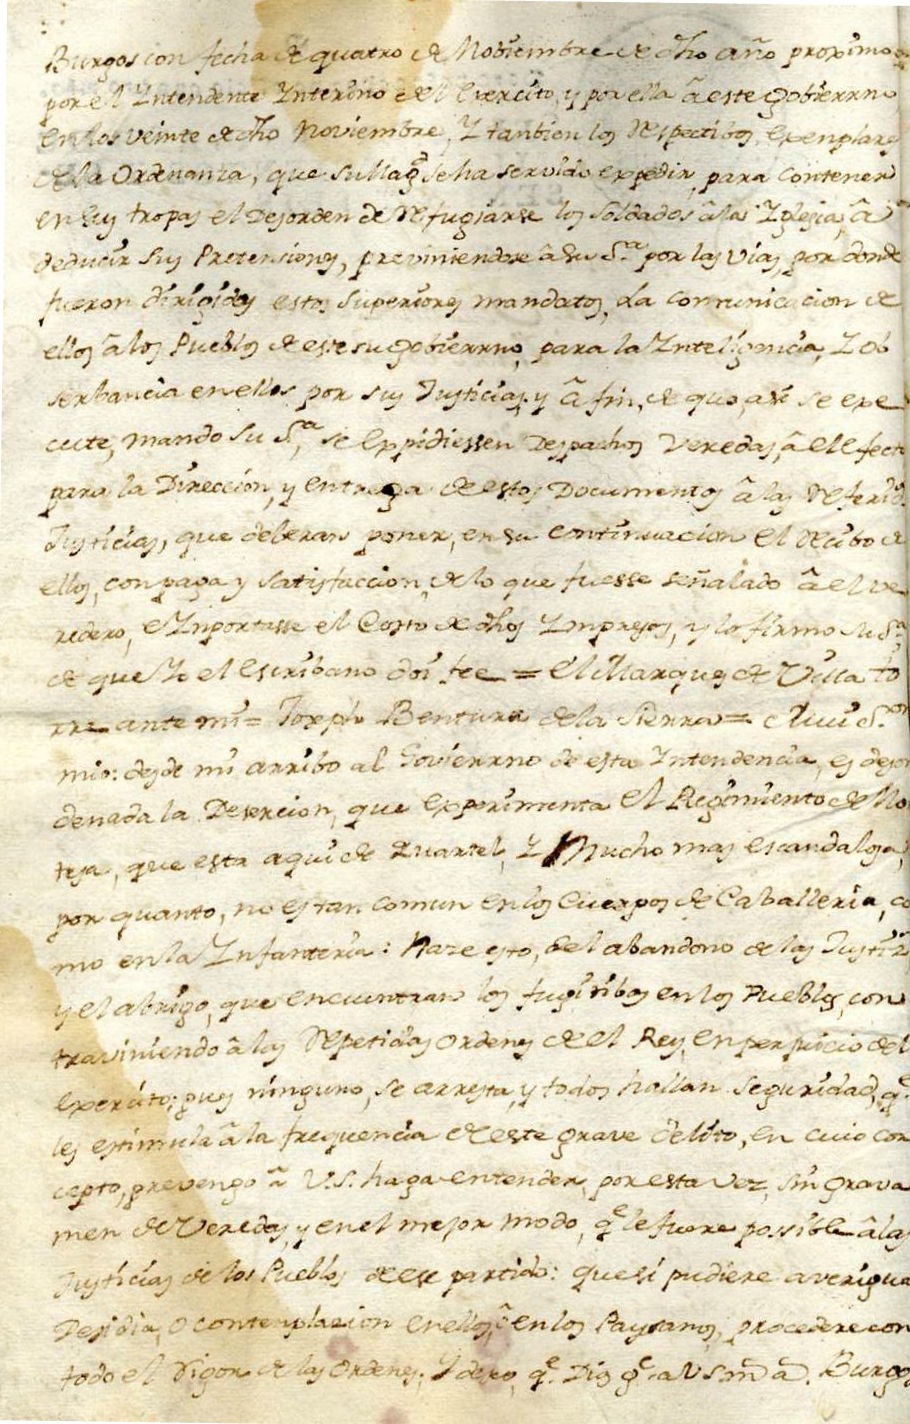 Burgos con fecha de quatro de Nobiembre de dho año proximo
por el Yntendente Ynterino de el Exercito, y por ella â este gobierrno
en los veinte de dho Noviembre, Y tanbien los Respectibos, exenplares
de la Ordenanza, que su Mag.d se ha servido expedir, para contener
en sus tropas el Desorden de Refugiarse los soldados â la Yglesia, â
deducir sus Pretensiones, previniendose â su S.a por las vias, por donde
fueron dirigidos estos superiores mandatos, La comunicacion de
ellos â los Pueblos de este su gobierrno, para la Ynteligencia, Y ob
serbancia en ellos por sus Justicias, y â fin, de que, asi se exe
cute, mando su S.a, se Expidiessen Despachos Veredas, â el efecto
para la Direccion, y entrega de estos Documentos â las Referid.s
Justicias, que deberan poner, en su continuacion el Recibo de
ellos, con paga y satisfaccion, de lo que fuesse señalado â el ve
redero, e Ynportasse el Costo de dhos Ympresos, y lo firmo su S.a
de que Yo el Escribano doi fee = El Marques de Villa to
rre ante mi = Joxph Bentura de la Sierra = Mui S.or
mio: desde mi arribo al Govierrno de esta Yntendencia, es desor
denada la Desercion, que experimenta el Regimiento de Mon
tesa, que esta aqui de Quartel, Y Mucho mas escandalosa,
por quanto, no es tan comun en los Cuerpos de Caballeria, co
mo en la Ynfanteria: Naze esto, del abandono de las Justiz.s
y el abrigo, que encuentran los fugitibos en los Pueblos, con
traviniendo â las Repetidas ordenes de el Rey, en perjuicio del
Exercito; pues ninguno, se arresta, y todos hallan seguridad, q.e
les estimula â la frequencia de este grave delito, en cuio con
cepto, prevengo â V.S. haga entender, por esta vez, sin grava
men de Veredas, y en el mejor modo, q.e le fuere possible â las
Justicias de los Pueblos de ese partido: que si pudiere averigua
Desidia, o contemplazion en ellos, ô en los Paysanos, procedere con
todo el Rigor de las Ordenes. Y deseo, q.e Dios g.e a V.S. m.s a.s Burgos